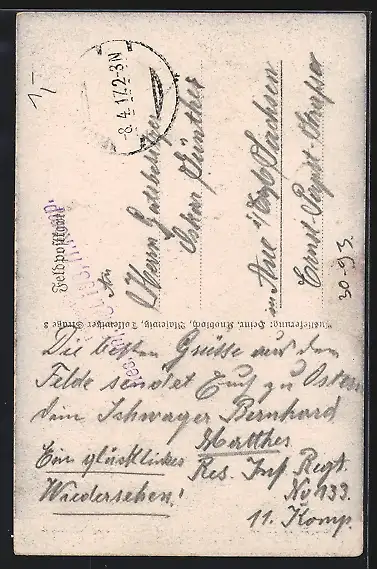 1,-
-8.4.17.2-3N
Feldpostkarte
An
Herrn
Oskar Günther
in Aue i/Erzg. Sachsen
Ernst Papst-Straße
30 93
Auslieferung: Heinr. Knobloch, Malewitz, Tolkewitzer Straße 8
Die besten Grüsse aus dem
Felde sendet Euch zu Ostern
dein Schwager Bernhard
Matthes
Ein glückliches
Res. Inf. Regt.
Wiedersehen!
No 133
11. Komp.